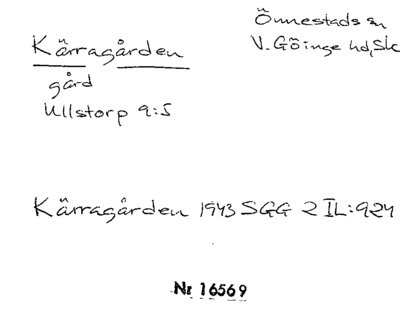 Kärragården
gård
Ullstorp 9:5
Önnestads sn
V. Göinge hd, Sk
Kärragården 1943 SGG 2 IL:924
Nr 16569